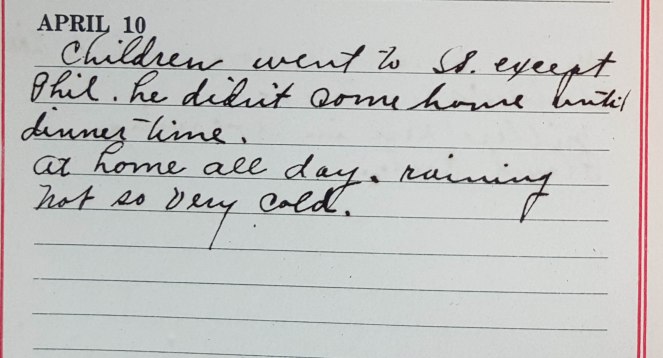 APRIL 10
Children went to SS. except
Phil. he didn't come home until
dinner-time.
at home all day. raining
not so very cold.